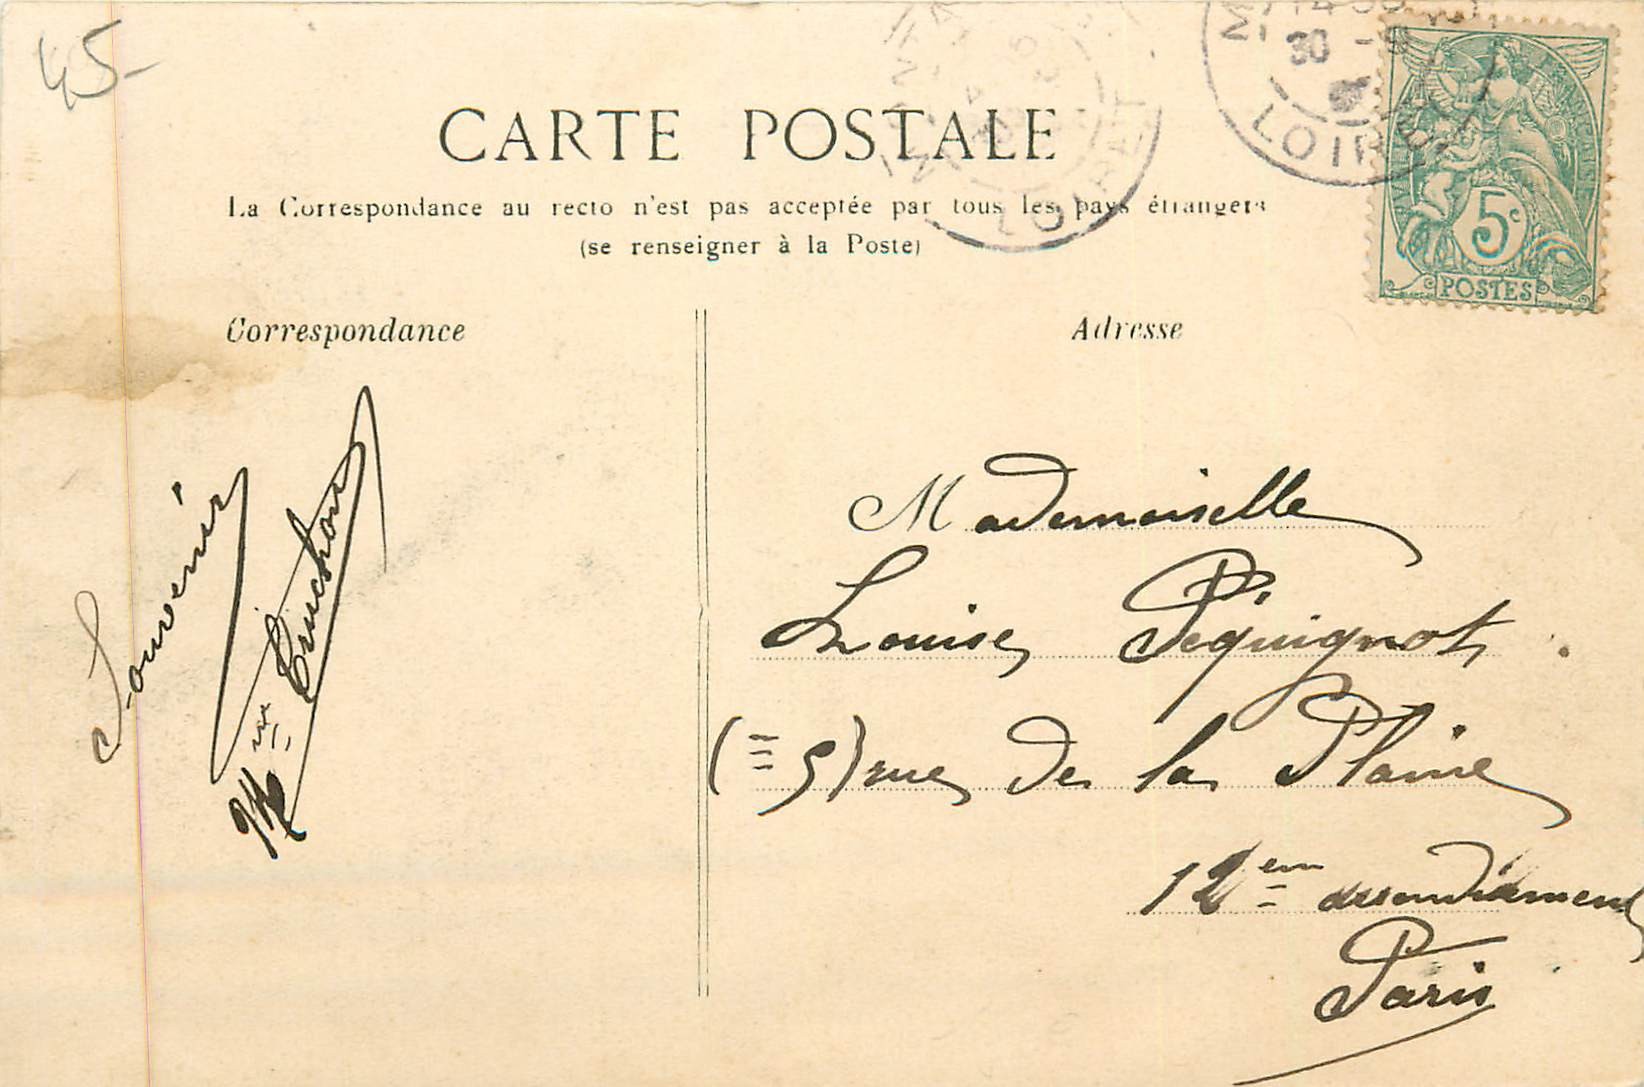 45-
CARTE POSTALE
La Correspondance au recto n'est pas acceptée par tous les pays étrangers
(se renseigner à la Poste)
Correspondance
Souvenir
Truchon
Adresse
Mademoiselle
Louise Péquignot
(5) rue de la Plaine
12em arrondissement
Paris
30
LOIRET
LOIRET
5c
POSTES